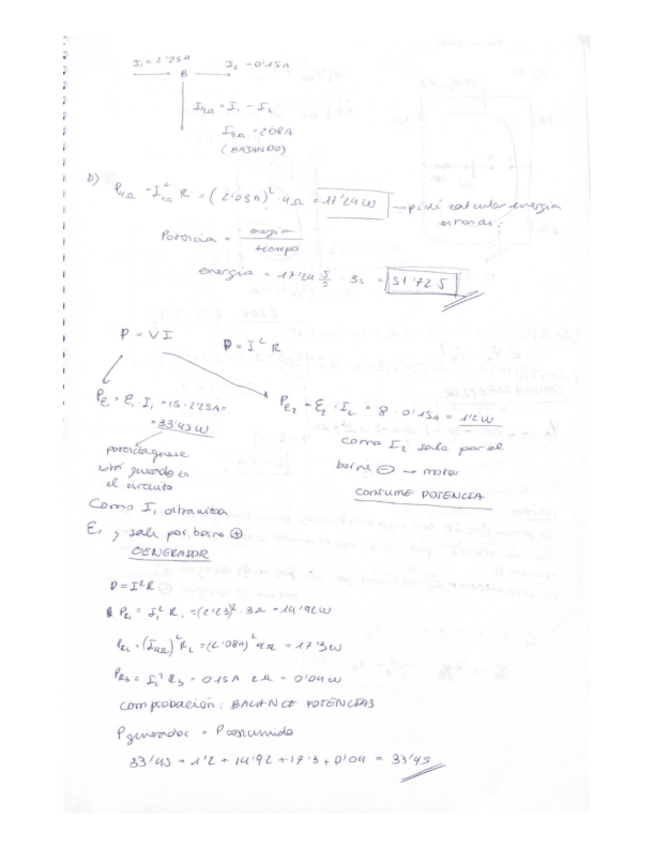 I₁ = 2'23A
B
I₂ = 0'15A
I₄Ω = I₁ - I₂
I₄Ω = 2'08A
(BAJANDO)
b) P₄Ω = I²₄Ω R = (2'08A)² · 4Ω = 17'24W — pide calcular energía
en 3s:
Potencia = energía / tiempo
energía = 17'24 J/s · 3s = 51'72 J
P = V I
P = I² R
Pε₁ = ε₁ · I₁ = 15 · 2'23A =
= 33'45W
potencia
en
el circuito
Como I₁ atraviesa
ε₁ y sale por borne ⊕
GENERADOR
Pε₂ = ε₂ · I₂ = 8 · 0'15A = 1'2W
como I₂ sale por el
borne ⊖ → motor
CONSUME POTENCIA
P = I²R
PR₁ = I₁² R₁ = (2'23)² · 3Ω = 14'92W
PR₂ = (I₄Ω)² R₂ = (2'08A)² 4Ω = 17'3W
PR₃ = I₂² R₃ = 0'15A 2Ω = 0'04W
comprobación: BALANCE POTENCIAS
Pgenerador = Pconsumida
33'45 = 1'2 + 14'92 + 17'3 + 0'04 = 33'45